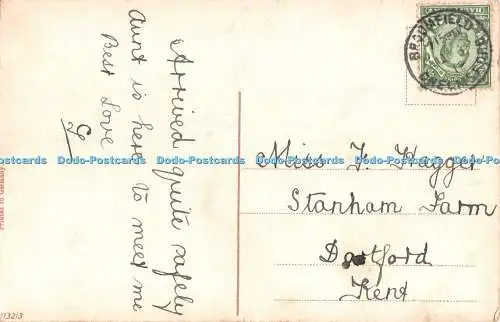 Arrived quite safely
aunt is here to meet me
Best Love
G
Miss F. Hagger
Stanham Farm
Dartford
Kent
Printed in Germany
Dodo-Postcards Dodo-Postcards Dodo-Postcards Dodo-Postcards Dodo-Postcards